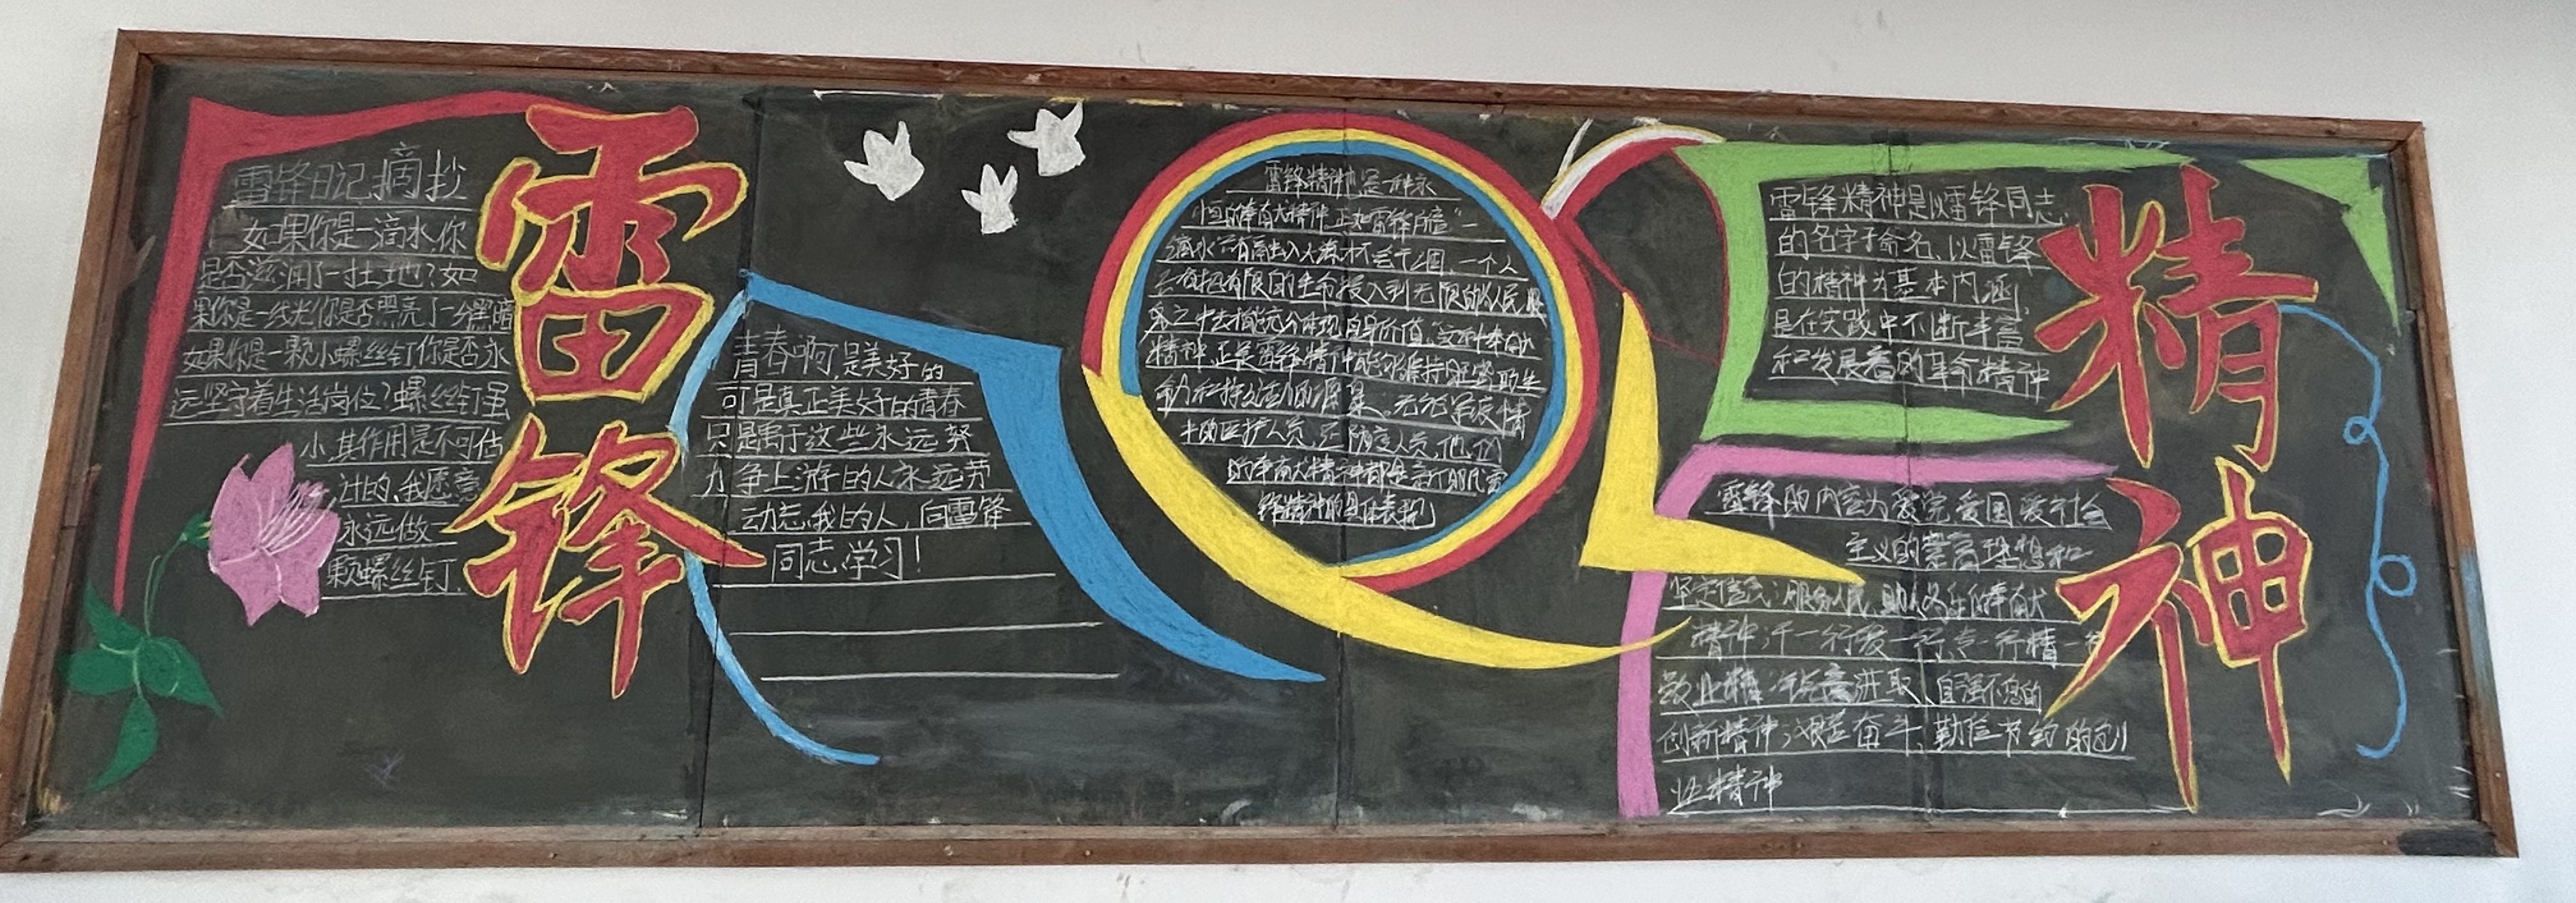 雷锋日记摘抄
如果你是一滴水你
是否滋润了一土地?如
果你是一线光你是否照亮了一分黑暗
如果你是一颗小螺丝钉你是否永
远坚守着生活岗位?螺丝钉虽
小,其作用是不可估
计的,我愿意
永远做一
颗螺丝钉.
雷锋
青春啊,是美好的
可是真正美好的青春
只是属于这些永远努
力争上游的人永远劳
动忘我的人,向雷锋
同志学习!
雷锋精神是一种永
恒的奉献精神正如雷锋所言"一
滴水只有融入大海才会干涸,一个人
只有把有限的生命投入到无限的人民服
务之中去才能充分体现自身价值,这种奉献
精神正是雷锋精神能够维持旺盛的生
的医护人员,还防疫人员,他们
的奉献精神都是新时代雷
锋精神的具体表现
雷锋精神是以雷锋同志
的名字命名,以雷锋
的精神为基本内涵,
是在实践中不断丰富
和发展着的革命精神
雷锋的内容为爱党爱国爱社会
主义的崇高理想和
坚定信念;服务人民,助人为乐的奉献
精神;干一行爱一行,专一行精一行
敬业精神;锐意进取、自强不息的
创新精神;艰苦奋斗,勤俭节约的创
业精神
精神